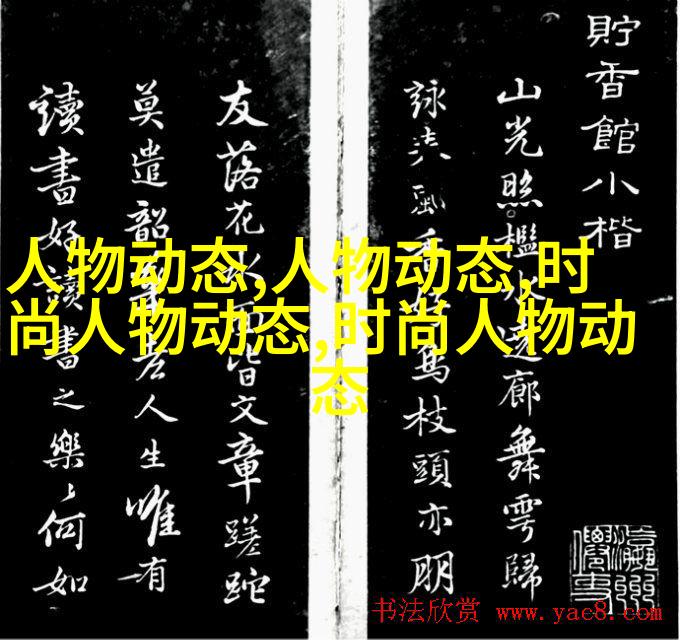 貯香館小楷
山光照檻水遶廊舞雩歸
詠春風香好鳥枝頭亦朋
友落花水面皆文章蹉跎
莫遣韶光老人生唯有
讀書好讀書之樂〻何如
人物动态,人物动态,时
尚人物动态,时尚人物动
态
书法欣赏 www.yac8.com